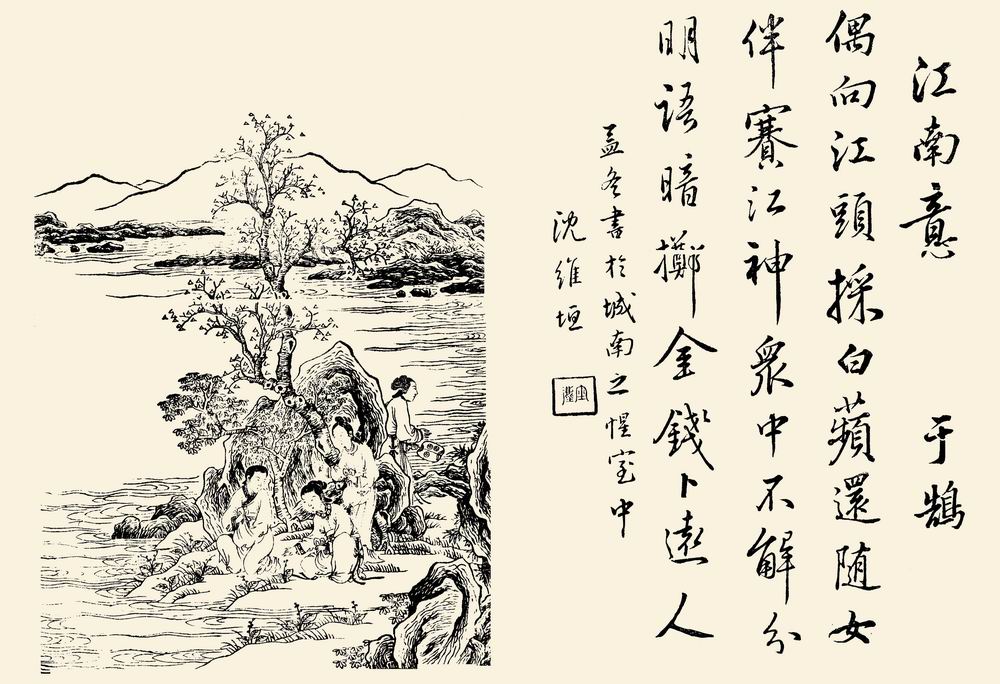 江南意 于鵠
偶向江頭採白蘋還随女
伴賽江神衆中不解分
明語暗擲金錢卜遠人
孟冬書於城南之惺室中
沈維垣